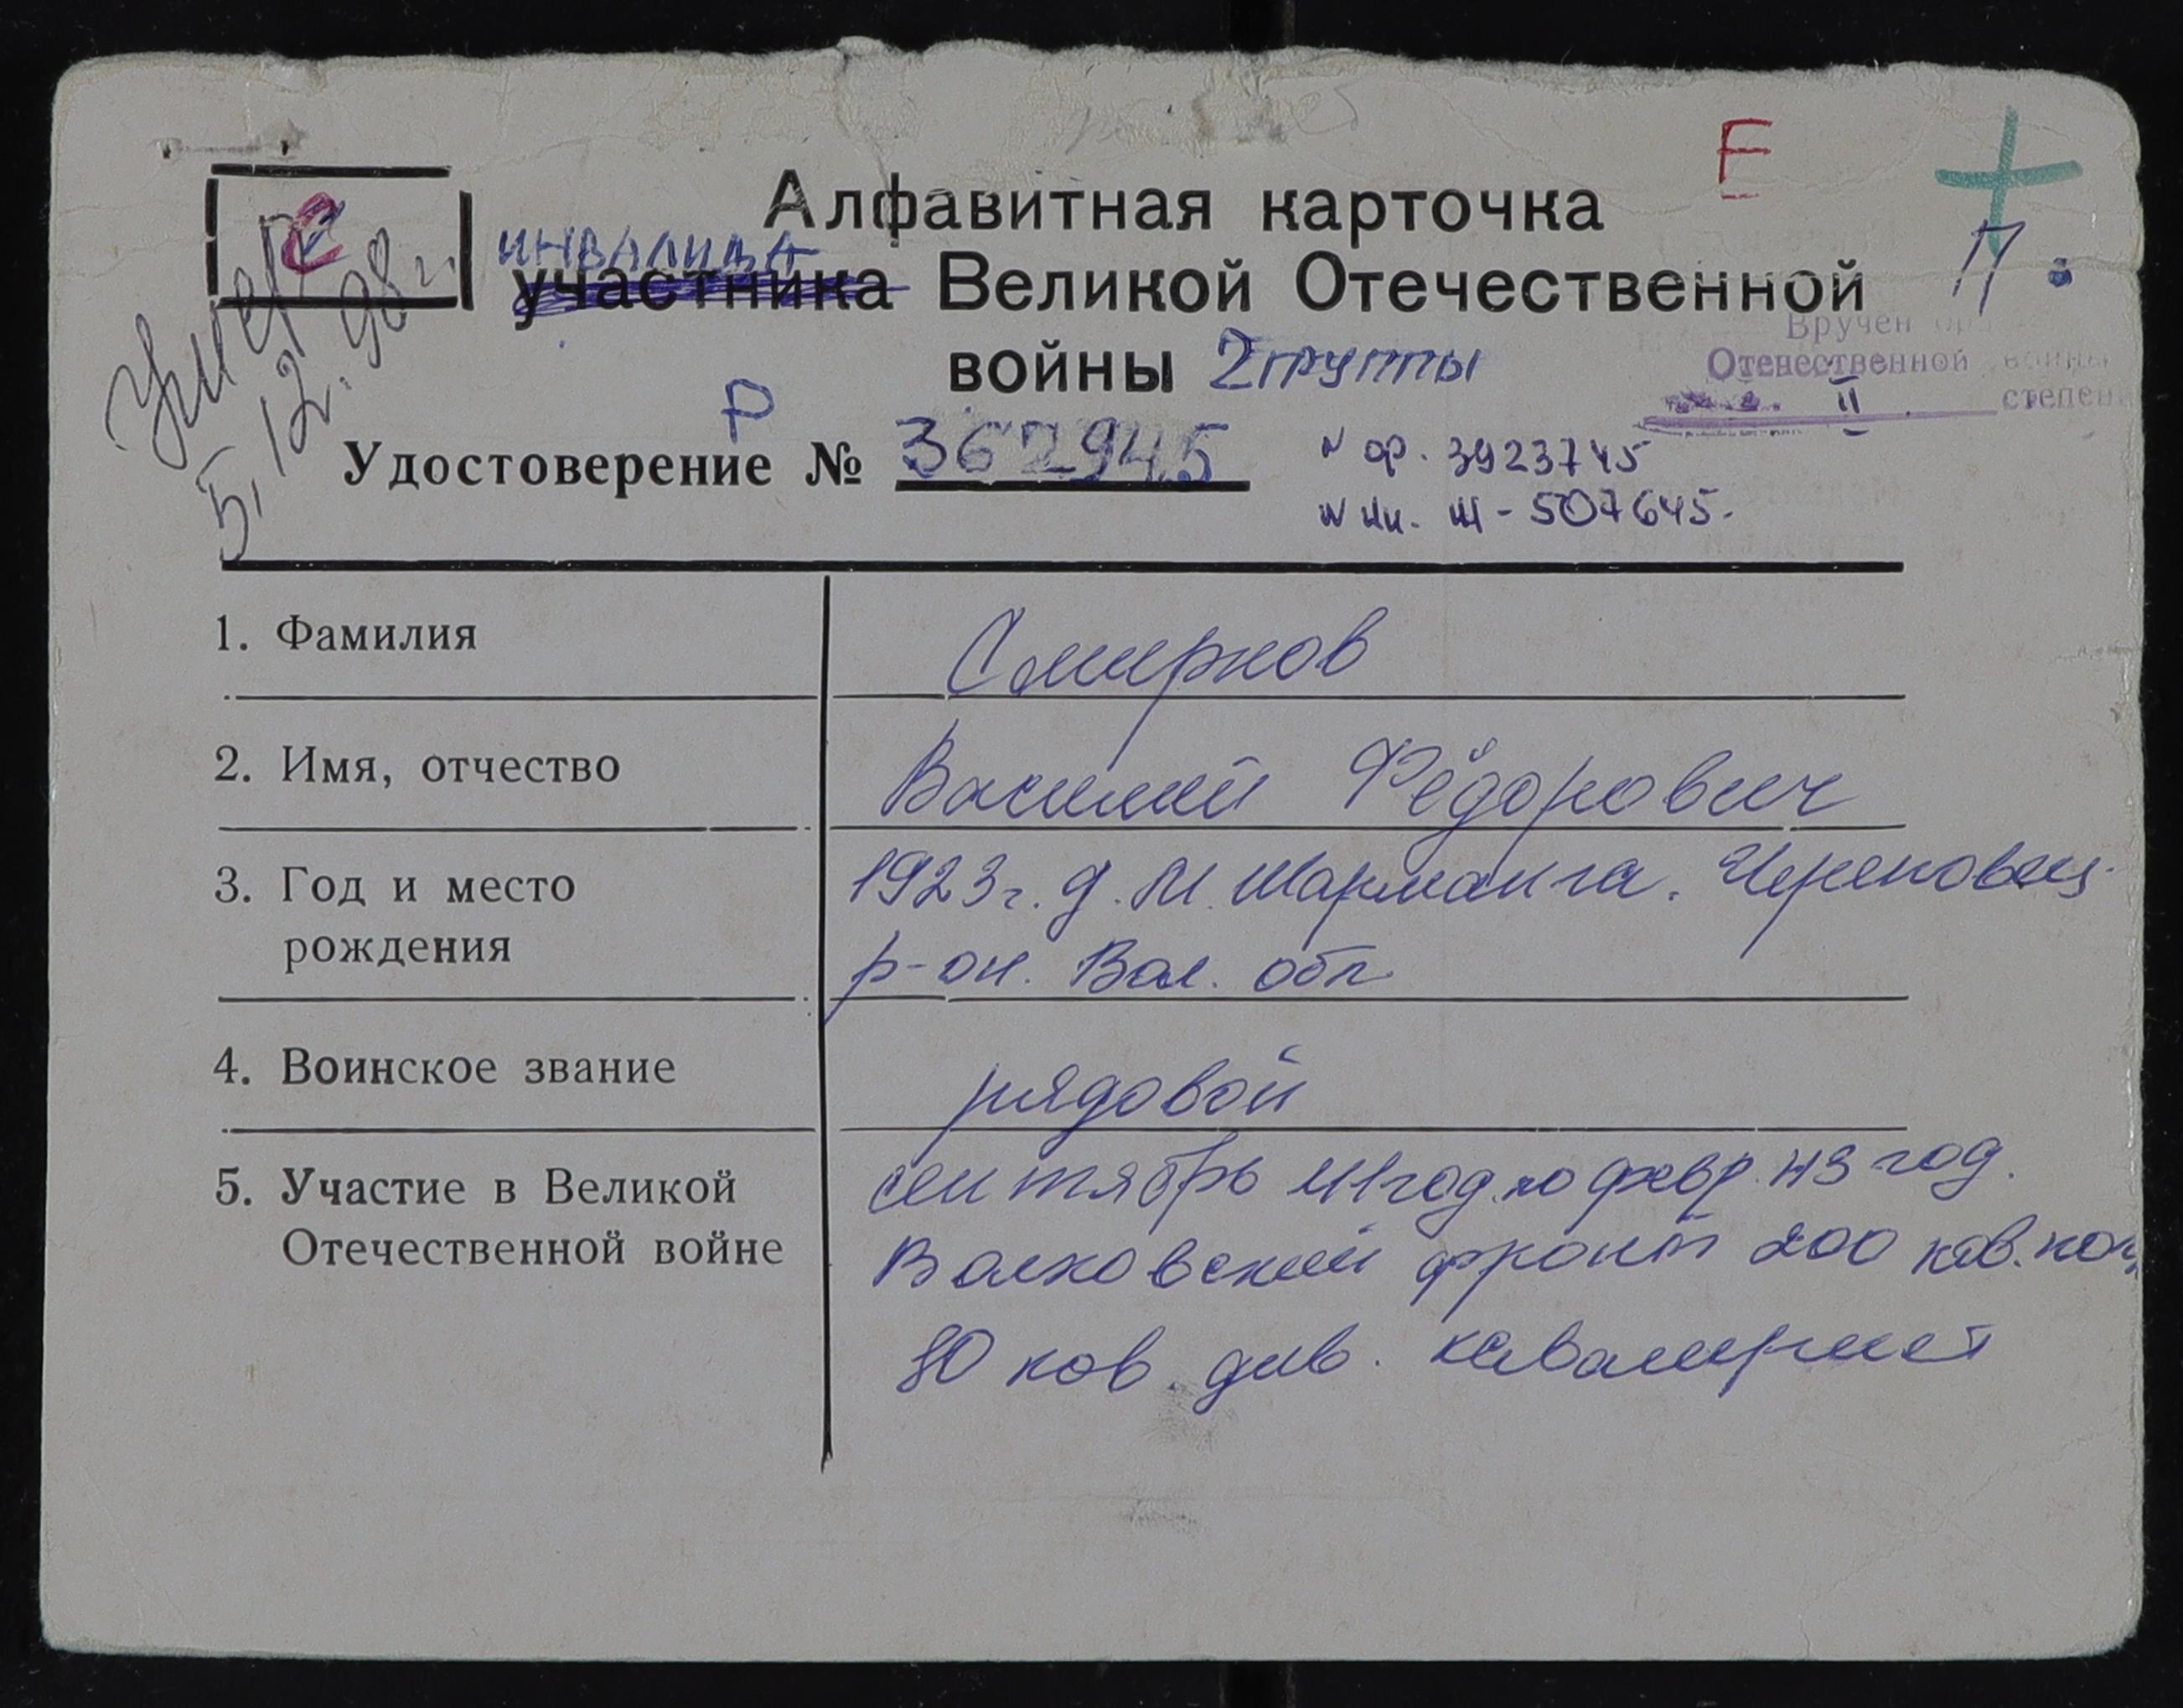 Е
С
Алфавитная карточка
П.
инвалида
участника Великой Отечественной
войны 2 группы
Вручен
Отечественной войны
II степени
Умер
5.12.98 г.
Р
Удостоверение № 362945
N ор. 3923745
N кн. Ш - 507645.
1. Фамилия
Смирнов
2. Имя, отчество
Василий Фёдорович
3. Год и место
рождения
1923 г. д. М. Шарманга. Череповец.
р-он. Вол. обл
4. Воинское звание
рядовой
5. Участие в Великой
Отечественной войне
сентябрь 41 год по февр. 43 год.
Волховский фронт 200 кав. пол
80 кав. див. кавалерист